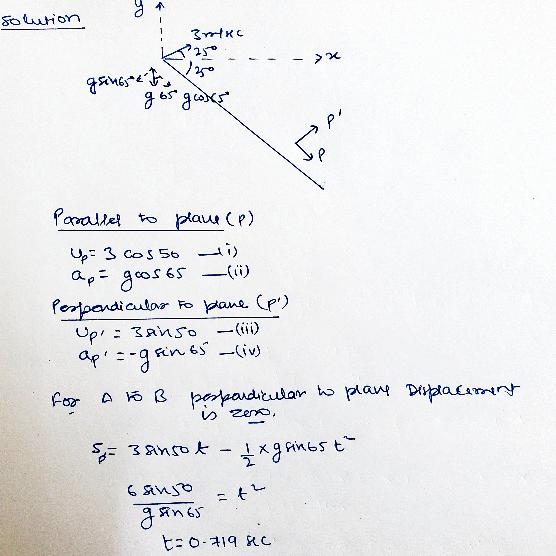 Solution
y
3 m/sec
25°
x
25°
g sin65°
g 65° g cos65°
P'
P
Parallel to plane (P)
Up = 3 cos 50 —(i)
ap = g cos 65 —(ii)
Perpendicular to plane (P')
Up' = 3 sin 50 —(iii)
ap' = -g sin 65 —(iv)
For A to B perpendicular to plane Displacement
is zero.
Sp = 3 sin 50 t - 1/2 × g sin 65 t²
6 sin 50 / g sin 65 = t²
t = 0.719 sec